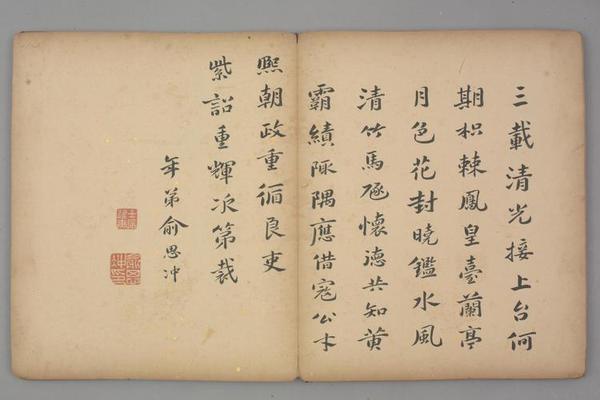 三載清光接上台何
期枳棘鳳皇臺蘭亭
月色花封曉鑑水風
清竹馬懷德共知黃
霸績陬隅應借寇公才
熙朝政重循良吏
紫詔重輝次第裁
年弟俞思冲